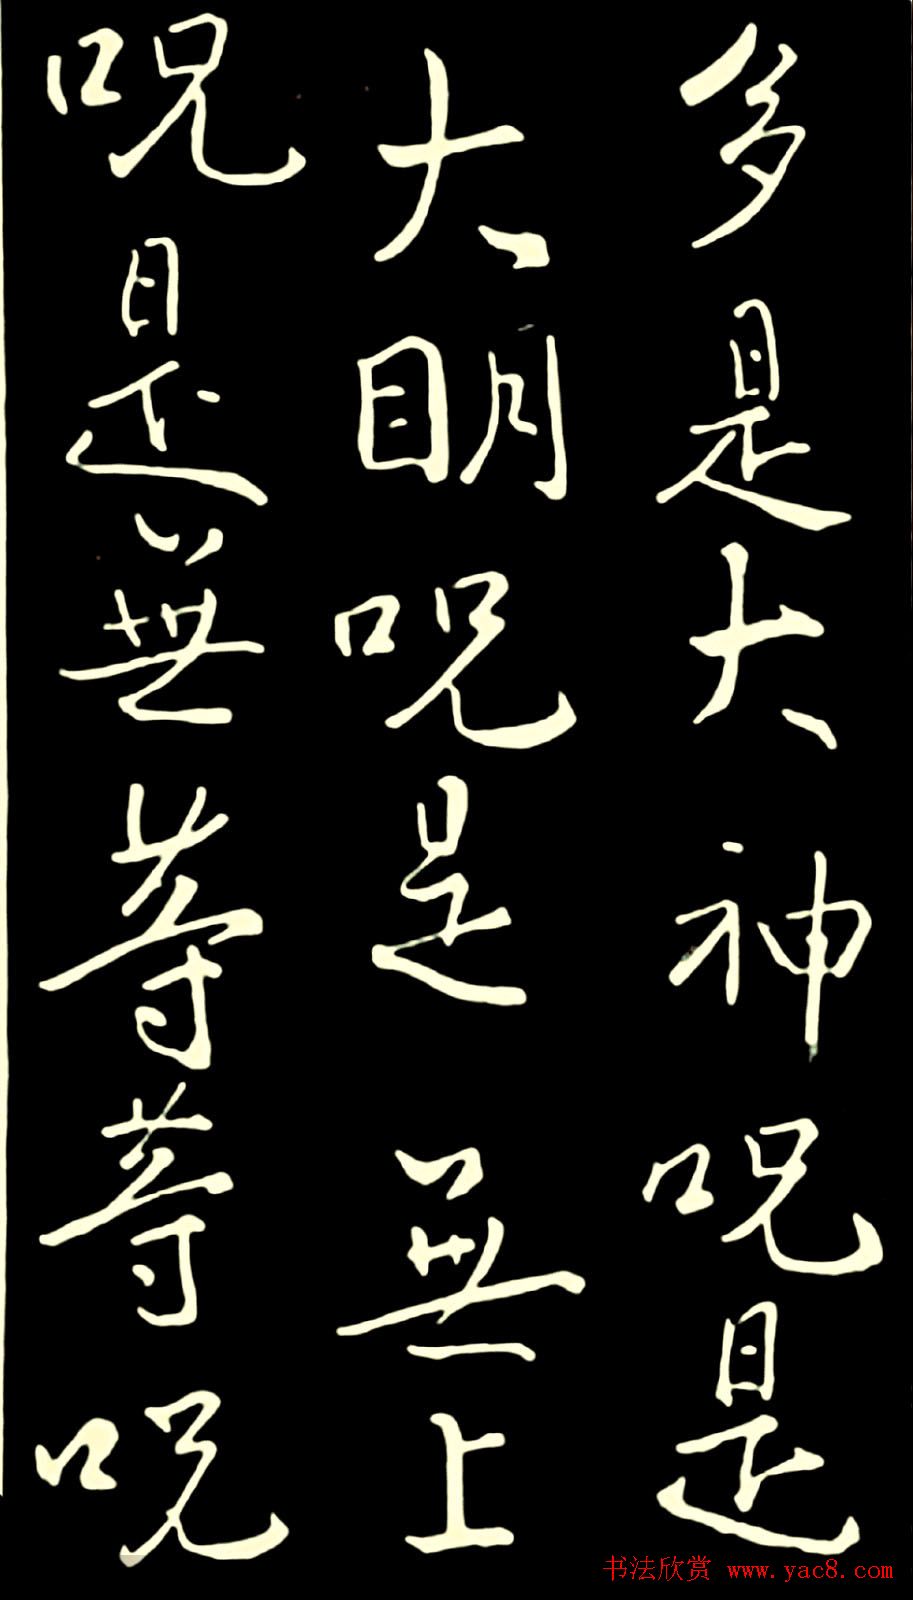 多是大神呪是
大明呪是無上
呪是無等等呪
书法欣赏 www.yac8.com